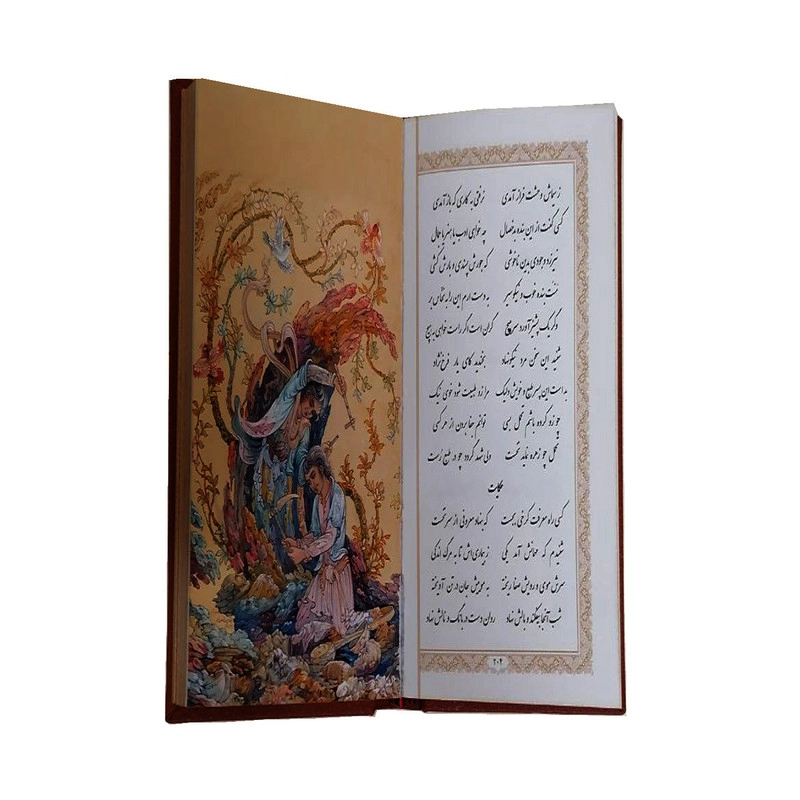 ز سیماش وحشت فراز آمدی نرفتی به کاری که باز آمدی
کسی گفت از این بنده بدخصال چه خواهی ادب یا هنر یا جمال
نیرزد وجودی بدین ناخوشی که جورش پسندی و بارش کشی
منت بنده خوب و نیکو سیر به دست آرم این را به نخاس بر
وگر یک پشیز آورد سر مپیچ گران است اگر راست خواهی به هیچ
شنید این سخن مرد نیکونهاد بخندید کای یار فرخ نژاد
بد است این پسر طبع و خویش ولیک مرا زو طبیعت شود خوی نیک
چو زو کرده باشم تحمل بسی توانم جفا بردن از هر کسی
تحمل چو زهرت نماید نخست ولی شهد گردد چو در طبع رست
حکایت
کسی راه معروف کرخی بجست که بنهاد معروفی از سر نخست
شنیدم که مهمانش آمد یکی ز بیماری اش تا به مرگ اندکی
سرش موی و رویش صفا ریخته به موییش جان در تن آویخته
شب آنجا بیفکند و بالش نهاد روان دست در بانگ و نالش نهاد
۲۰۴